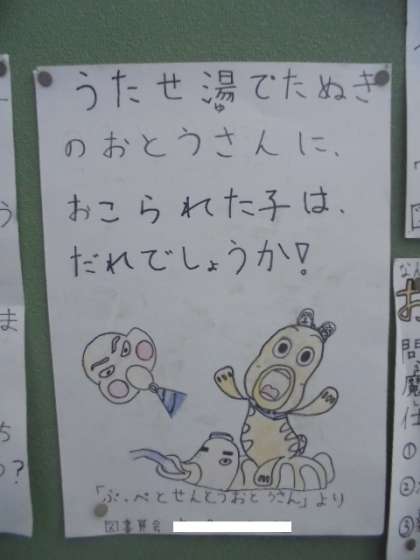 うたせ湯でたぬき
ゆ
のおとうさんに、
おこられた子は、
だれでしょうか!
「ぷっぺとせんとうおとうさん」より
図書委員会
う
ま
ち
?
なん
お
問
魔
仕
①
②
③